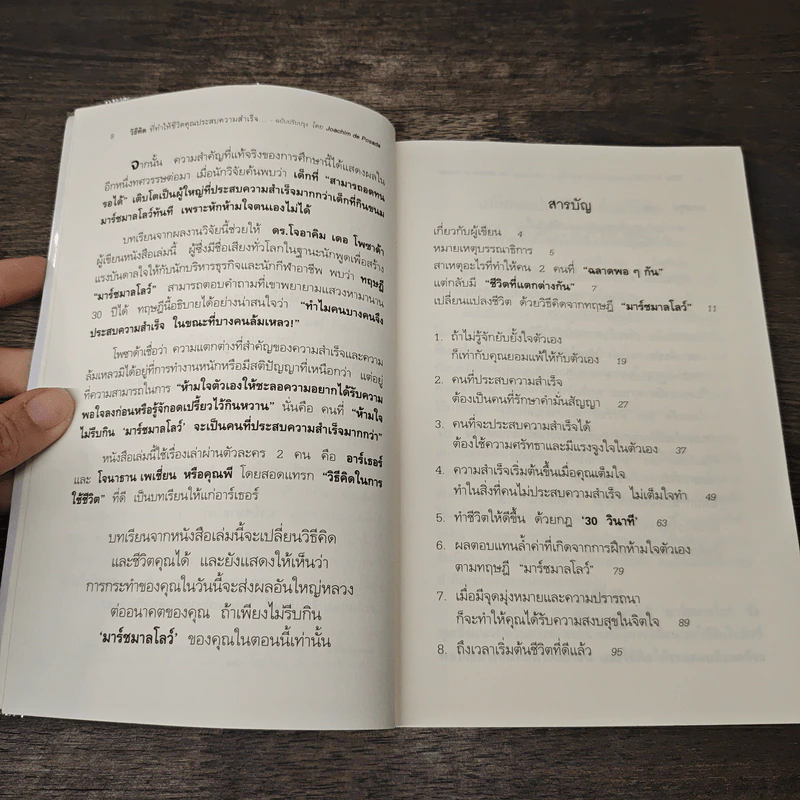 8 วิธีคิด ที่ทำให้ชีวิตคุณประสบความสำเร็จ... - ฉบับปรับปรุง โดย Joachim de Posada
จากนั้น ความสำคัญที่แท้จริงของการศึกษานี้ได้แสดงผลใน
อีกหนึ่งทศวรรษต่อมา เมื่อนักวิจัยค้นพบว่า เด็กที่ “สามารถอดทน
รอได้” เติบโตเป็นผู้ใหญ่ที่ประสบความสำเร็จมากกว่าเด็กที่กินขนม
มาร์ชมาลโลว์ทันที เพราะหักห้ามใจตนเองไม่ได้
บทเรียนจากผลงานวิจัยนี้ช่วยให้ ดร.โจอาคิม เดอ โพซาด้า
ผู้เขียนหนังสือเล่มนี้ ผู้ซึ่งมีชื่อเสียงทั่วโลกในฐานะนักพูดเพื่อสร้าง
แรงบันดาลใจให้กับนักบริหารธุรกิจและนักกีฬาอาชีพ พบว่า ทฤษฎี
“มาร์ชมาลโลว์” สามารถตอบคำถามที่เขาพยายามแสวงหามานาน
30 ปีได้ ทฤษฎีนี้อธิบายได้อย่างน่าสนใจว่า “ทำไมคนบางคนจึง
ประสบความสำเร็จ ในขณะที่บางคนล้มเหลว!”
โพซาด้าเชื่อว่า ความแตกต่างที่สำคัญของความสำเร็จและความ
ล้มเหลวมิได้อยู่ที่การทำงานหนักหรือมีสติปัญญาที่เหนือกว่า แต่อยู่
ที่ความสามารถในการ “ห้ามใจตัวเองให้ชะลอความอยากได้รับความ
พอใจลงก่อนหรือรู้จักอดเปรี้ยวไว้กินหวาน” นั่นคือ คนที่ “ห้ามใจ
ไม่รีบกิน ‘มาร์ชมาลโลว์’ จะเป็นคนที่ประสบความสำเร็จมากกว่า”
หนังสือเล่มนี้ใช้เรื่องเล่าผ่านตัวละคร 2 คน คือ อาร์เธอร์
และ โจนาธาน เพเชี่ยน หรือคุณพี โดยสอดแทรก “วิธีคิดในการ
ใช้ชีวิต” ที่ดี เป็นบทเรียนให้แก่อาร์เธอร์
บทเรียนจากหนังสือเล่มนี้จะเปลี่ยนวิธีคิด
และชีวิตคุณได้ และยังแสดงให้เห็นว่า
การกระทำของคุณในวันนี้จะส่งผลอันใหญ่หลวง
ต่ออนาคตของคุณ ถ้าเพียงไม่รีบกิน
‘มาร์ชมาลโลว์’ ของคุณในตอนนี้เท่านั้น
สารบัญ
เกี่ยวกับผู้เขียน 4
หมายเหตุบรรณาธิการ 5
สาเหตุอะไรที่ทำให้คน 2 คนที่ “ฉลาดพอ ๆ กัน”
แต่กลับมี “ชีวิตที่แตกต่างกัน” 7
เปลี่ยนแปลงชีวิต ด้วยวิธีคิดจากทฤษฎี “มาร์ชมาลโลว์” 11
1. ถ้าไม่รู้จักยับยั้งใจตัวเอง
ก็เท่ากับคุณยอมแพ้ให้กับตัวเอง 19
2. คนที่ประสบความสำเร็จ
ต้องเป็นคนที่รักษาคำมั่นสัญญา 27
3. คนที่จะประสบความสำเร็จได้
ต้องใช้ความศรัทธาและมีแรงจูงใจในตัวเอง 37
4. ความสำเร็จเริ่มต้นขึ้นเมื่อคุณเต็มใจ
ทำในสิ่งที่คนไม่ประสบความสำเร็จ ไม่เต็มใจทำ 49
5. ทำชีวิตให้ดีขึ้น ด้วยกฎ ‘30 วินาที’ 63
6. ผลตอบแทนล้ำค่าที่เกิดจากการฝึกห้ามใจตัวเอง
ตามทฤษฎี “มาร์ชมาลโลว์” 79
7. เมื่อมีจุดมุ่งหมายและความปรารถนา
ก็จะทำให้คุณได้รับความสงบสุขในจิตใจ 89
8. ถึงเวลาเริ่มต้นชีวิตที่ดีแล้ว 95